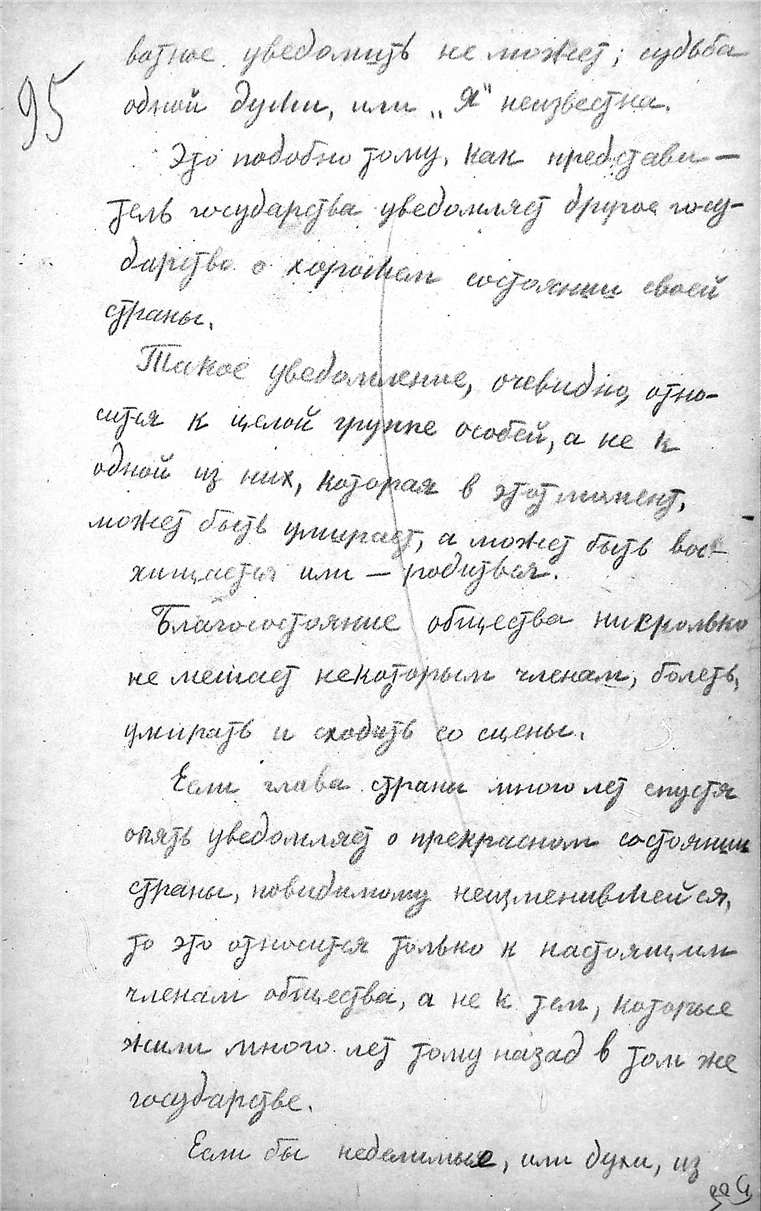 95
вотное уведомить не может; судьба
одной души, или „Я" неизвестна.
Это подобно тому, как представи-
тель государства уведомляет другое госу-
дарство о хорошем состоянии своей
страны.
Такое уведомление, очевидно, отно-
сится к целой группе особей, а не к
одной из них, которая в этот момент,
может быть умирает, а может быть вос-
хищается или — родиться.
Благосостояние общества нисколько
не мешает некоторым членам, болеть,
умирать и сходить со сцены.
Если глава страны много лет спустя
опять уведомляет о прекрасном состоянии
страны, повидимому неизменившейся,
то это относится только к настоящим
членам общества, а не к тем, которые
жили много лет тому назад в том же
государстве.
Если бы неделимые, или души, из